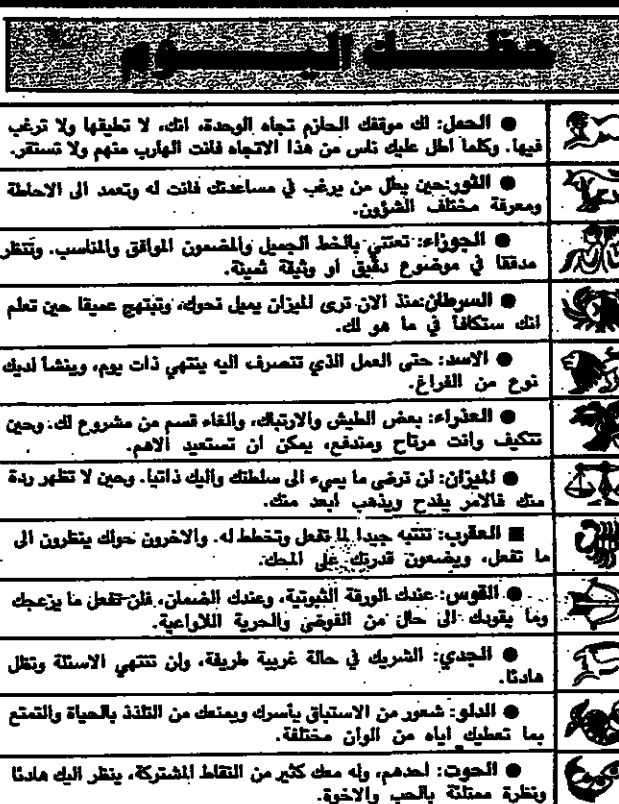 حظـــك اليـــوم
● الحمل: لك موقفك الحازم تجاه الوحدة، انك، لا تطيقها ولا ترغب
فيها. وكلما اطل عليك ناس من هذا الاتجاه فانت الهارب منهم ولا تستقر.
● الثور:حين يطل من يرغب في مساعدتك فانت له وتعمد الى الاحاطة
ومعرفة مختلف الشؤون.
● الجوزاء: تعتني بالخط الجميل والمضمون الموافق والمناسب. وتنظر
مدققا في موضوع دقيق او وثيقة ثمينة.
● السرطان:منذ الان ترى الميزان يميل نحوك، وتبتهج عميقا حين تعلم
انك ستكافأ في ما هو لك.
● الاسد: حتى العمل الذي تتصرف اليه ينتهي ذات يوم، وينشأ لديك
نوع من الفراغ.
● العذراء: بعض الطيش والارتباك، والغاء قسم من مشروع لك. وحين
تتكيف وانت مرتاح ومندفع، يمكن ان تستعيد الاهم.
● الميزان: لن ترضى ما يسيء الى سلطتك واليك ذاتيا. وحين لا تظهر ردة
منك فالامر يفدح ويذهب ابعد منك.
■ العقرب: تنتبه جيدا لما تفعل وتخطط له. والاخرون حولك ينظرون الى
ما تفعل، ويضعون قدرتك على المحك.
● القوس: عندك الورقة الثبوتية، وعندك الضمان، فلن تفعل ما يزعجك
وما يقودك الى حال من الفوضى والحرية اللاواعية.
● الجدي: الشريك في حالة غريبة طريفة، ولن تنتهي الاسئلة وتظل
هادئا.
● الدلو: شعور من الاستباق يأسرك ويمنعك من التلذذ بالحياة والتمتع
بما تعطيك اياه من الوان مختلفة.
● الحوت: احدهم، وله معك كثير من النقاط المشتركة، ينظر اليك هادئا
ونظرة ممتلئة بالحب والاخوة.